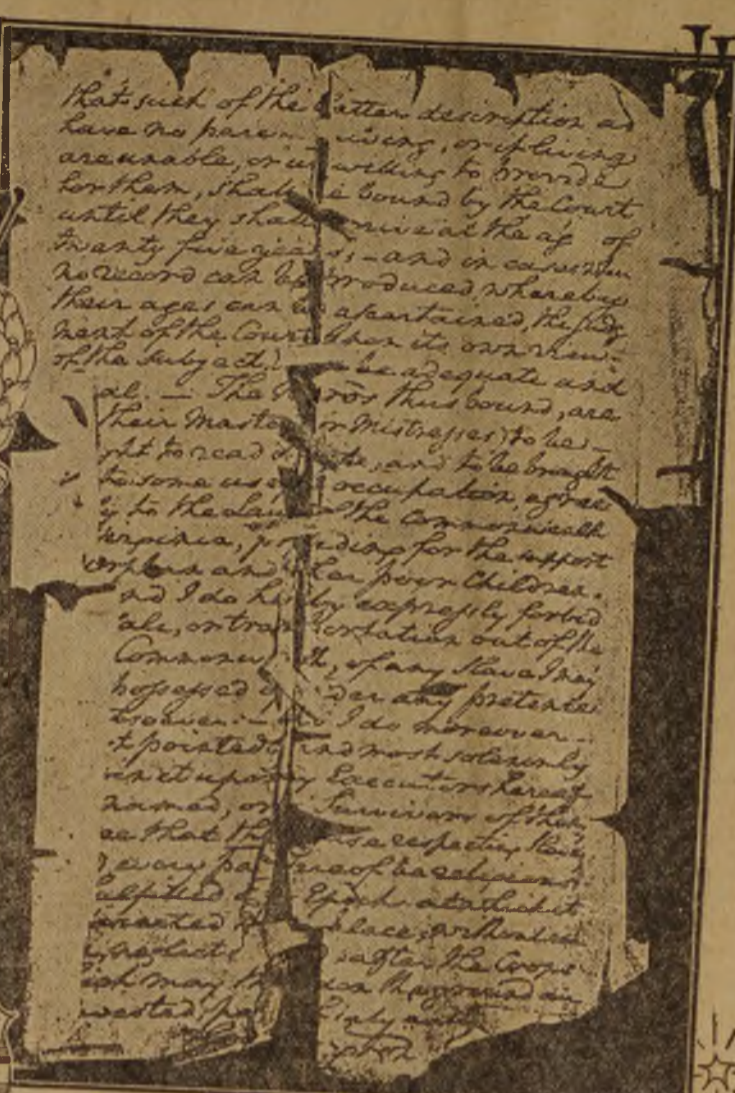 that such of the latter description as
have no paren iving, or if living
are unable, or u willing to provide
for them, shall e bound by the Court
until they shall rrive at the ag of
twenty five years; – and in cases when
no record can be produced, whereby
their ages can b ascertained, the judg
ment of the Court upon its own view
of the subject be adequate and
al. – The N gros thus bound, are
their Maste or Mistresses) to be –
ght to read te; and to be brought
to some use occupation, agree
y to the Law the Commonwealth
irginia, pro iding for the support
orphan and her poor Children.
nd I do he by expressly forbid
ale, or tran ortation out of the
Commonw th, of any Slave I may
possessed der any pretence
tsoever. – I do moreover –
t pointedly and most solemnly
in it upon my Executors hereaf
named, or Survivors of them,
ee that th se respecting Slave
every pa reof be religious
ulfilled Epoch at which it
irected lace; without
neglect after the Crops
ich may th on the ground
vested, pa